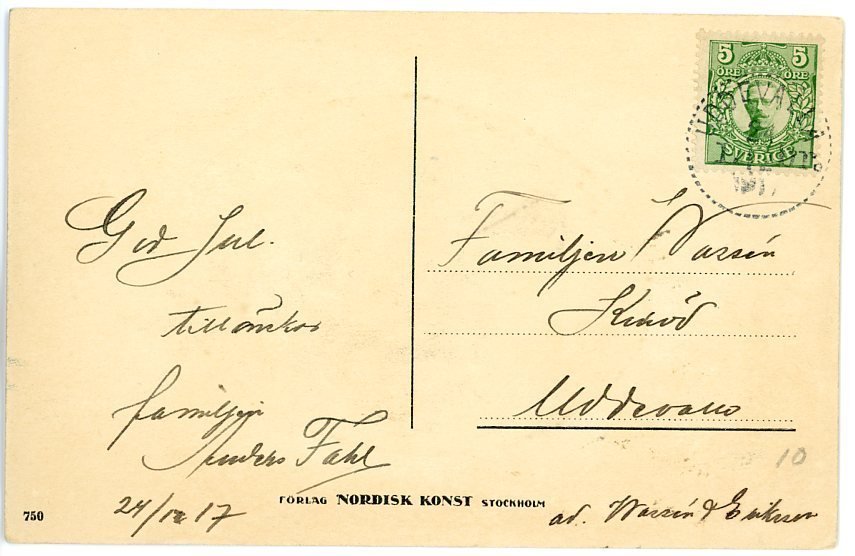 5 5
ÖRE ÖRE
SVERIGE
UDDEVALLA
1917
God Jul.
tillönskas
familjen
Anders Fahl
24/12 17
Familjen Wassén
Uddevalla
10
750
FÖRLAG NORDISK KONST STOCKHOLM
ad. Wassén & Erikson